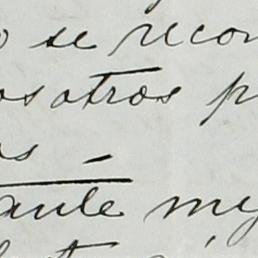 o se recon
osotros p
os —
ante mej